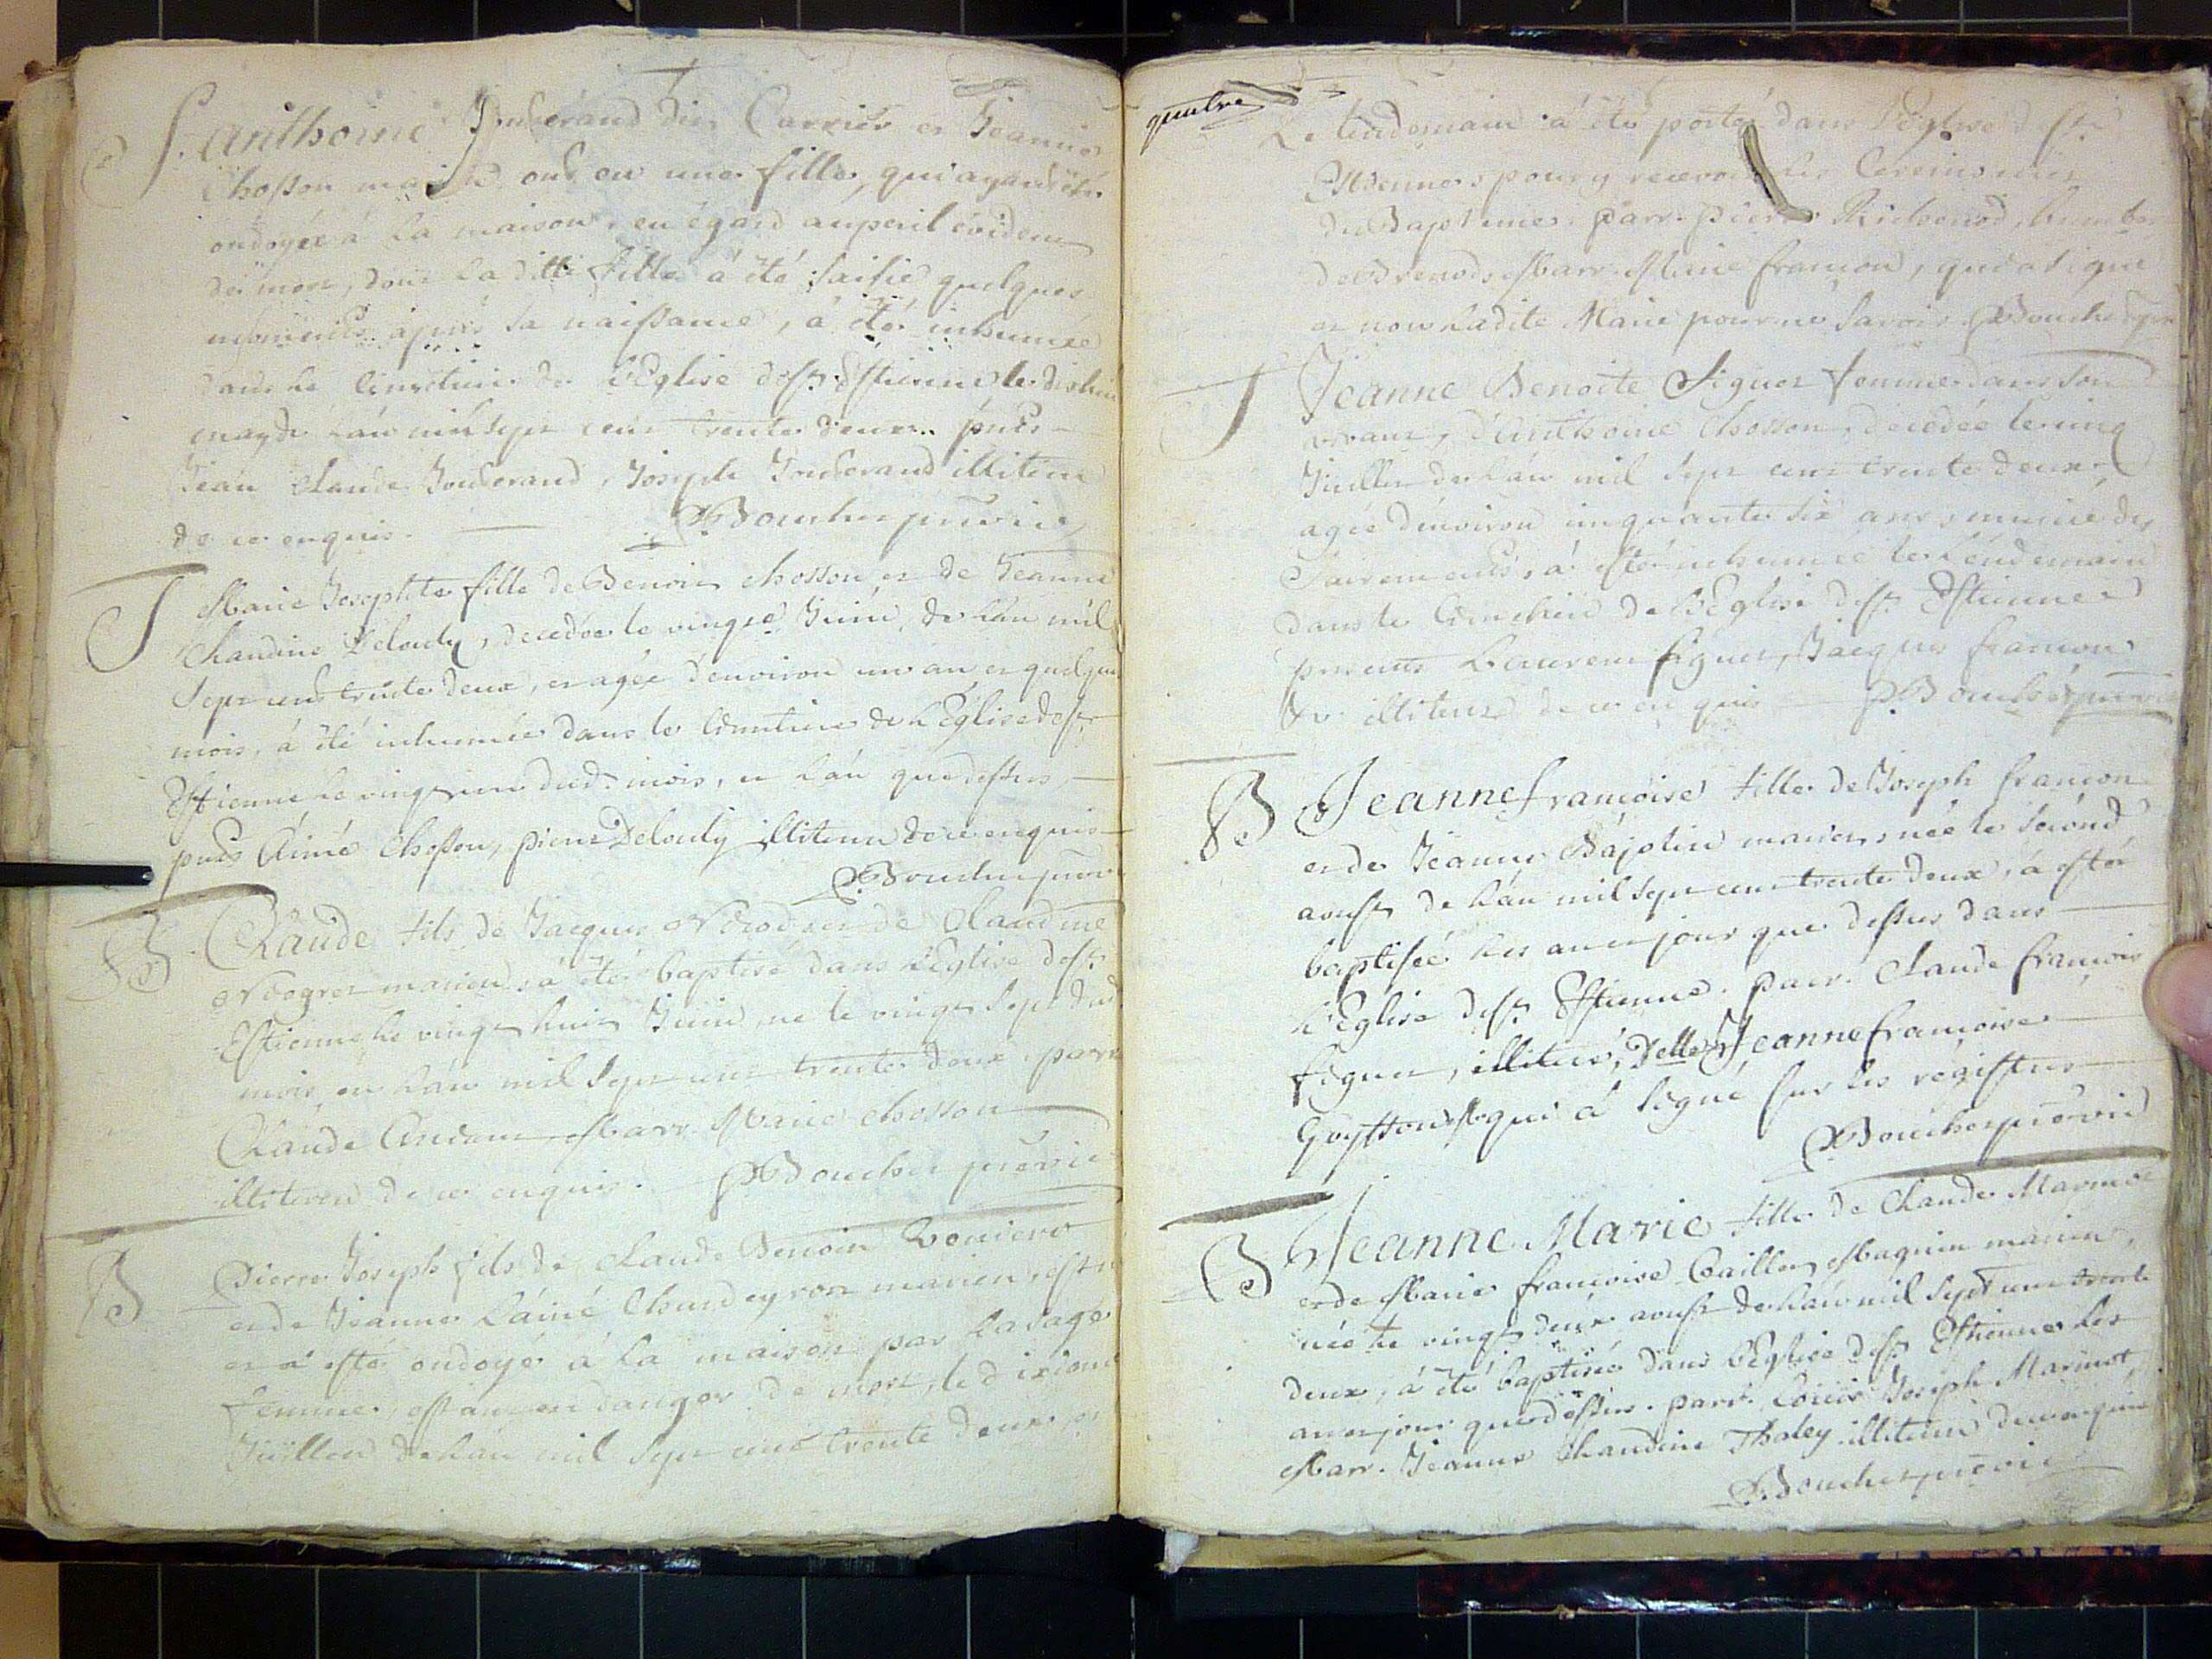 Anthoine Jouberand dit Carrier et Jeanne
Chosson mariés ont eu une fille, qui ayant été
ondoyée à la maison, eu égard au peril évident
de mort, dont la ditte fille a été saisie quelques
momens après sa naissance, a été inhumée
dans le Cimetiere de l'Eglise de St. Estienne le dixhuit
may de l'an mil sept cent trente deux. pnts
Jean Claude Jouberand, Joseph Jouberand illiterez
de ce enquis. Boucher
Marie Josephte fille de Benoit Chosson et de Jeanne
Claudine Delouly, decedée le vingt Juin de l'an mil
sept cent trente deux, et agée d'environ un an et quelques
mois, a été inhumée dans le Cimetiere de l'Eglise de St
Estienne le vingt un dud. mois, et l'an que dessus
pnts Aimé Chosson, pierre Delouly illiterez de ce enquis
Boucher
B Claude fils de Jacques et de Claudine
mariez, a été baptisé dans l'Eglise de St
Estienne le vingt huit Juin, né le vingt sept dud.
mois, en l'an mil sept cent trente deux. parr
Claude marr Marie Chosson
illiterez de ce enquis. Boucher
B Pierre Joseph fils de Claude Benoit
et de Jeanne Lainé mariez, est né
et a esté ondoyé à la maison par la sage
femme, estant en danger de mort, le dixieme
Juillet de l'an mil sept cent trente deux, et
quatre
Le lendemain a été porté dans l'Eglise de St
Estienne pour y recevoir les Ceremonies
du Baptesme. parr. pierre
marr. Marie françon, qui a signé
et non ladite Marie pour ne savoir Boucher
Jeanne Benoite Siguet femme dans son
vivant d'Anthoine Chosson, decedée le cinq
Juillet de l'an mil sept cent trente deux
agée d'environ cinquante six ans, munie des
Sacremens, a esté inhumée le lendemain
dans le Cimetiere de l'Eglise de St Estienne
presens Laurent figuet, Jacques françon
illiterez de ce enquis Boucher
B Jeanne françoise fille de Joseph françon
et de Jeanne Bajolin mariez, née le second
aoust de l'an mil sept cent trente deux, a esté
baptisée les an et jour que dessus dans
l'Eglise de St Estienne. parr. Claude françois
figuet, illiteré, Delle Jeanne françoise
Guyetton qui a signé sur les registres
Boucher
B Jeanne Marie fille de Claude Marmot
et de Marie françoise Caillet mariez,
née le vingt deux aoust de l'an mil sept cent trente
deux, a été baptisée dans l'Eglise de St Estienne les
an et jour que dessus. parr. Louis Joseph Marmot,
marr. Jeanne Claudine Thaley illiterez de ce enquis
Boucher